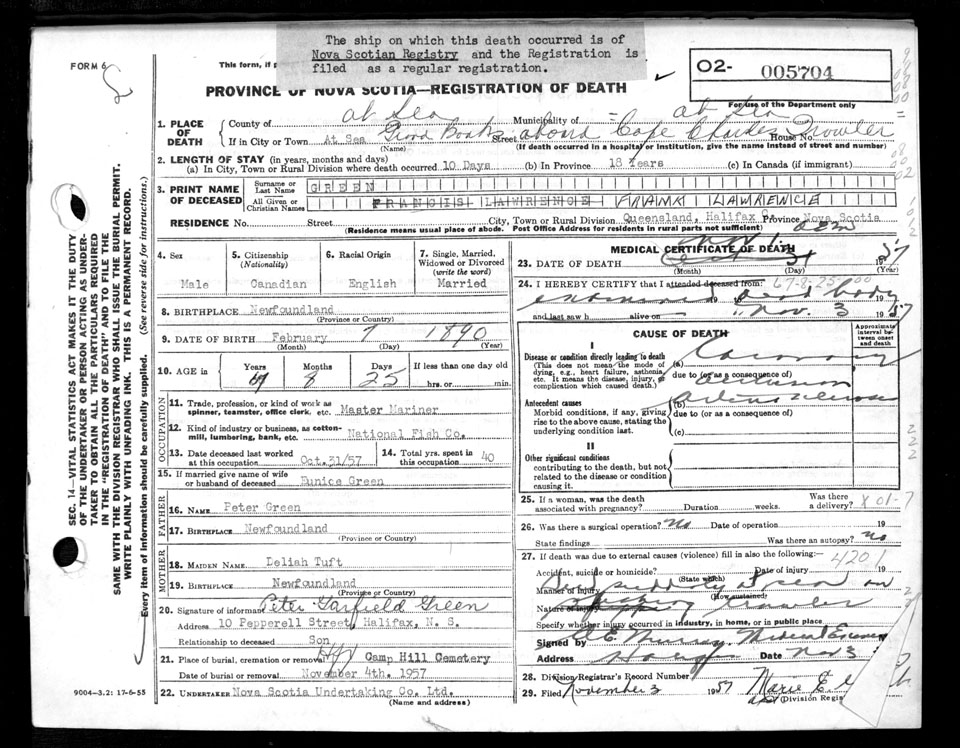 The ship on which this death occurred is of
Nova Scotian Registry and the Registration is
filed as a regular registration.
FORM 6
This form, if
O2- 005704
PROVINCE OF NOVA SCOTIA—REGISTRATION OF DEATH
For use of the Department only
1. PLACE OF DEATH
County of at Sea Municipality of at Sea
If in City or Town At Sea Street aboard Cape Charles Trawler House No.
(Name) (If death occurred in a hospital or institution, give the name instead of street and number)
2. LENGTH OF STAY (in years, months and days)
(a) In City, Town or Rural Division where death occurred 10 Days (b) In Province 18 Years (c) In Canada (if immigrant)
3. PRINT NAME OF DECEASED
Surname or Last Name GREEN
All Given or Christian Names FRANCIS LAWRENCE FRANK LAWRENCE
RESIDENCE No. Street City, Town or Rural Division Queensland, Halifax Province Nova Scotia
(Residence means usual place of abode. Post Office Address for residents in rural parts not sufficient)
4. Sex
Male
5. Citizenship (Nationality)
Canadian
6. Racial Origin
English
7. Single, Married, Widowed or Divorced (write the word)
Married
8. BIRTHPLACE Newfoundland
(Province or Country)
9. DATE OF BIRTH February 7 1890
(Month) (Day) (Year)
10. AGE in Years Months Days If less than one day
8 25 hrs. or min.
OCCUPATION
11. Trade, profession, or kind of work as
spinner, teamster, office clerk, etc. Master Mariner
12. Kind of industry or business, as cotton-
mill, lumbering, bank, etc. National Fish Co.
13. Date deceased last worked at this occupation Oct.31/57
14. Total yrs. spent in this occupation 40
15. If married give name of wife
or husband of deceased Eunice Green
FATHER
16. Name Peter Green
17. Birthplace Newfoundland
(Province or Country)
MOTHER
18. MAIDEN NAME Deliah Tuft
19. BIRTHPLACE Newfoundland
(Province or Country)
20. Signature of informant Peter Garfield Green
Address 10 Pepperell Street, Halifax, N. S.
Relationship to deceased Son
21. Place of burial, cremation or removal Camp Hill Cemetery
Date of burial or removal November 4th. 1957
22. UNDERTAKER Nova Scotia Undertaking Co. Ltd.
(Name and address)
9004-3.2: 17-6-55
SEC. 14—VITAL STATISTICS ACT MAKES IT THE DUTY
OF THE UNDERTAKER OR PERSON ACTING AS UNDER-
TAKER TO OBTAIN ALL THE PARTICULARS REQUIRED
IN THE "REGISTRATION OF DEATH" AND TO FILE THE
SAME WITH THE DIVISION REGISTRAR WHO SHALL ISSUE THE BURIAL PERMIT.
WRITE PLAINLY WITH UNFADING INK. THIS IS A PERMANENT RECORD.
Every item of information should be carefully supplied. (See reverse side for instructions.)
MEDICAL CERTIFICATE OF DEATH
23. DATE OF DEATH 1957
(Month) (Day) (Year)
24. I HEREBY CERTIFY that I attended deceased from: 67-8-25
examined dead body 19
and last saw h alive on Nov. 3 1957
CAUSE OF DEATH
Approximate interval between onset and death
I
Disease or condition directly leading to death
(This does not mean the mode of dying, e.g., heart failure, asthenia etc. It means the disease, injury, or complication which caused death.)
(a) Coronary
due to (or as a consequence of)
Occlusion
Antecedent causes
Morbid conditions, if any, giving rise to the above cause, stating the underlying condition last.
(b) Arteriosclerosis
due to (or as a consequence of)
(c)
II
Other significant conditions
contributing to the death, but not related to the disease or condition causing it.
25. If a woman, was the death associated with pregnancy? Duration weeks. Was there a delivery?
26. Was there a surgical operation? No Date of operation 19
State findings Was there an autopsy? No
27. If death was due to external causes (violence) fill in also the following:—
4201
Accident, suicide or homicide? (State which) Date of injury 19
Manner of injury Died suddenly at sea on
(How sustained)
Nature of injury trawler
Specify whether injury occurred in industry, in home, or in public place
Signed by E. Murray Medical Examiner
Address Halifax Date Nov 3
28. Division Registrar's Record Number
29. Filed November 3 1957 Marie E.
(Division Regis